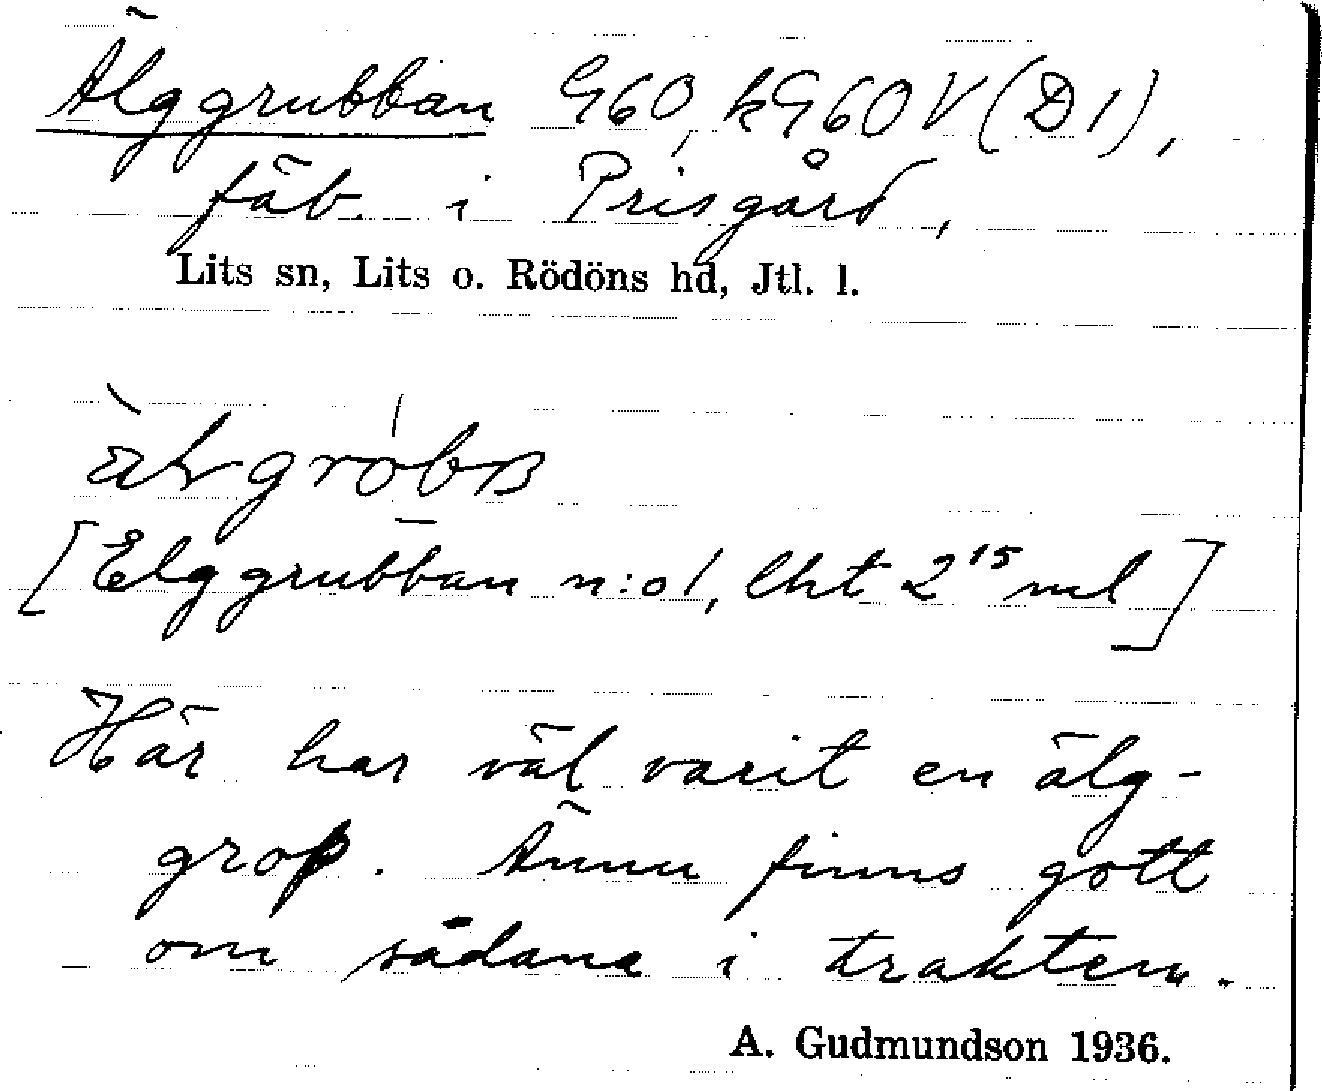 Älggrubban G60, kG60V (D1),
fäb. i Prisgård,
Lits sn, Lits o. Rödöns hd, Jtl. l.
[Elggrubban n:o 1, lht 2¹⁵ ml]
Här har väl varit en älg-
grop. Ännu finns gott
om sådana i trakten.
A. Gudmundson 1936.